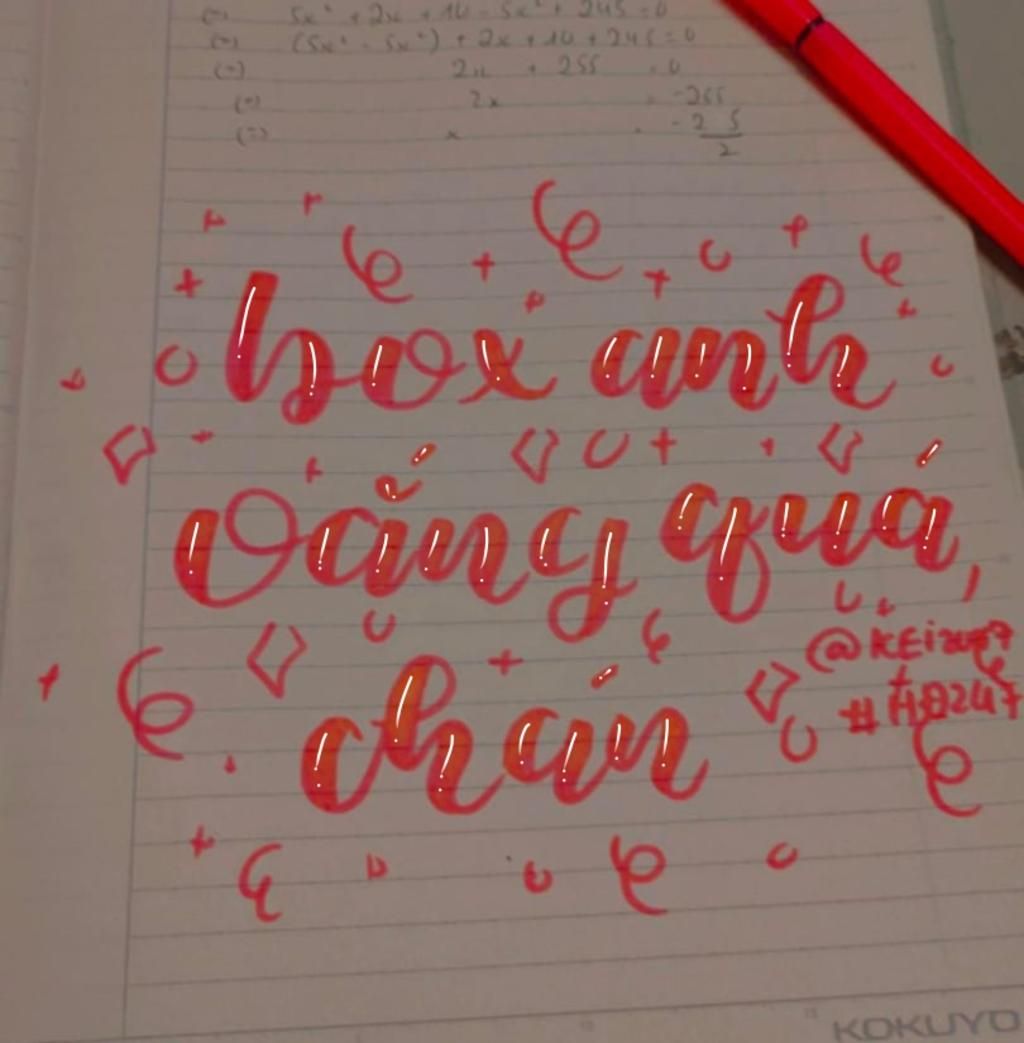 (=) 5x² + 2x + 10 - 5x² + 245 = 0
(=) (5x² - 5x²) + 2x + 10 + 245 = 0
(=) 2x + 255 = 0
(=) 2x = -255
(=) x =
box anh
vắng quá,
chán
@KEizu97
#H8247
KOKUYO